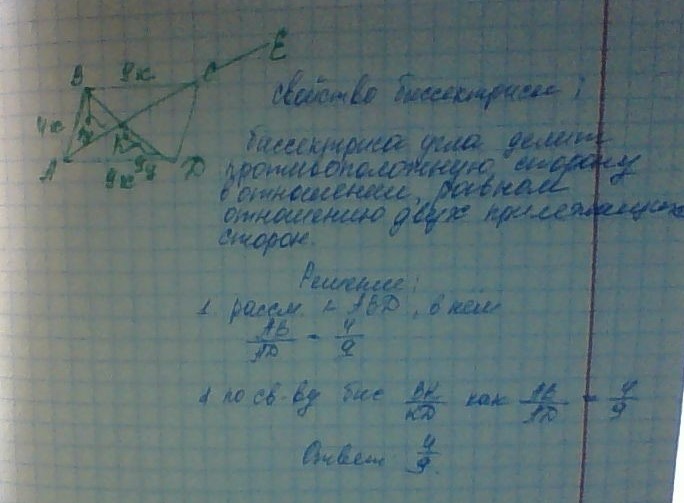 E
B 9x C
4x
K
A 9x 9y D
Свойство биссектрисы:
биссектриса угла делит
противоположную сторону
в отношении, равном
отношению двух прилежащих
сторон.
Решение:
1. рассм. ABD, в нём
AB/AD = 4/9
по св-ву бис BK/KD как AB/AD = 4/9
Ответ 4/9.